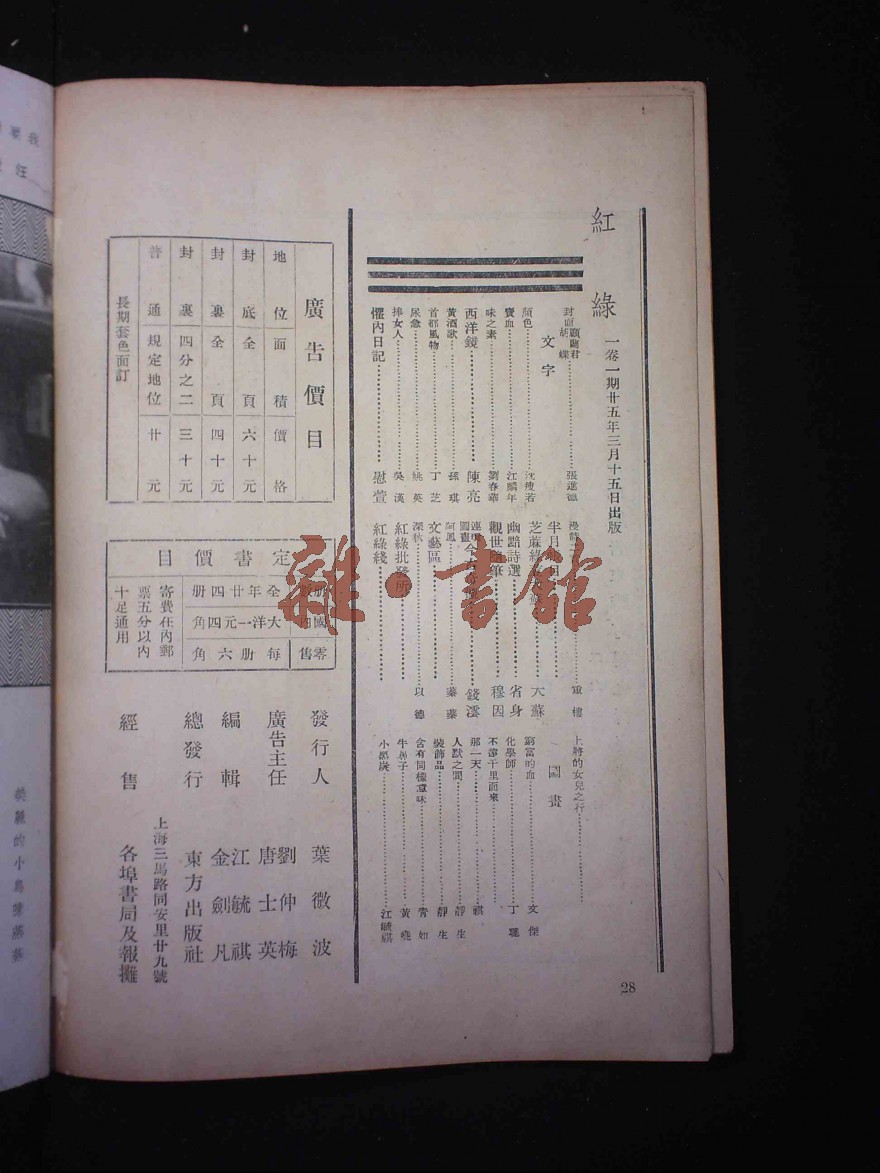 紅綠
一卷一期廿五年三月十五日出版
張蓬
封面胡蝶
文字
顏色
沈瘦若
寶血
江麟年
味之素
劉春華
西洋鏡
陳亮
黃酒歌
孫琪
首都風物
丁芝
尿急
姚英
摔女人
吳漢
懼內日記
慰萱
童樓
半月
芝蔴綠
大蘇
幽默詩選
省身
觀世隨筆
穆因
連環圖畫
錢澐
阿鳳
蓁蓁
文藝區
深秋
以德
紅綠批發所
紅綠綫
上將的女兒之行
圖畫
窮富的血
文傑
化學師
丁聰
不遠千里而來
那一天
祺
人獸之間
靜生
裝飾品
靜生
含有同樣意味
青如
牛梯子
黃堯
江毓祺
28
廣告價目
地位面積價格
封底全頁六十元
封裏全頁四十元
封裏四分之二三十元
普通規定地位廿元
長期套色面訂
定書價目
冊數 全年廿四冊
國內 大洋一元四角
零售 每冊六角
寄費在內郵
票五分以內
十足通用
發行人 葉微波
廣告主任 劉仲梅
唐士英
編輯 江毓祺
金劍凡
總發行 東方出版社
上海三馬路同安里廿九號
經售 各埠書局及報攤
雜·書館